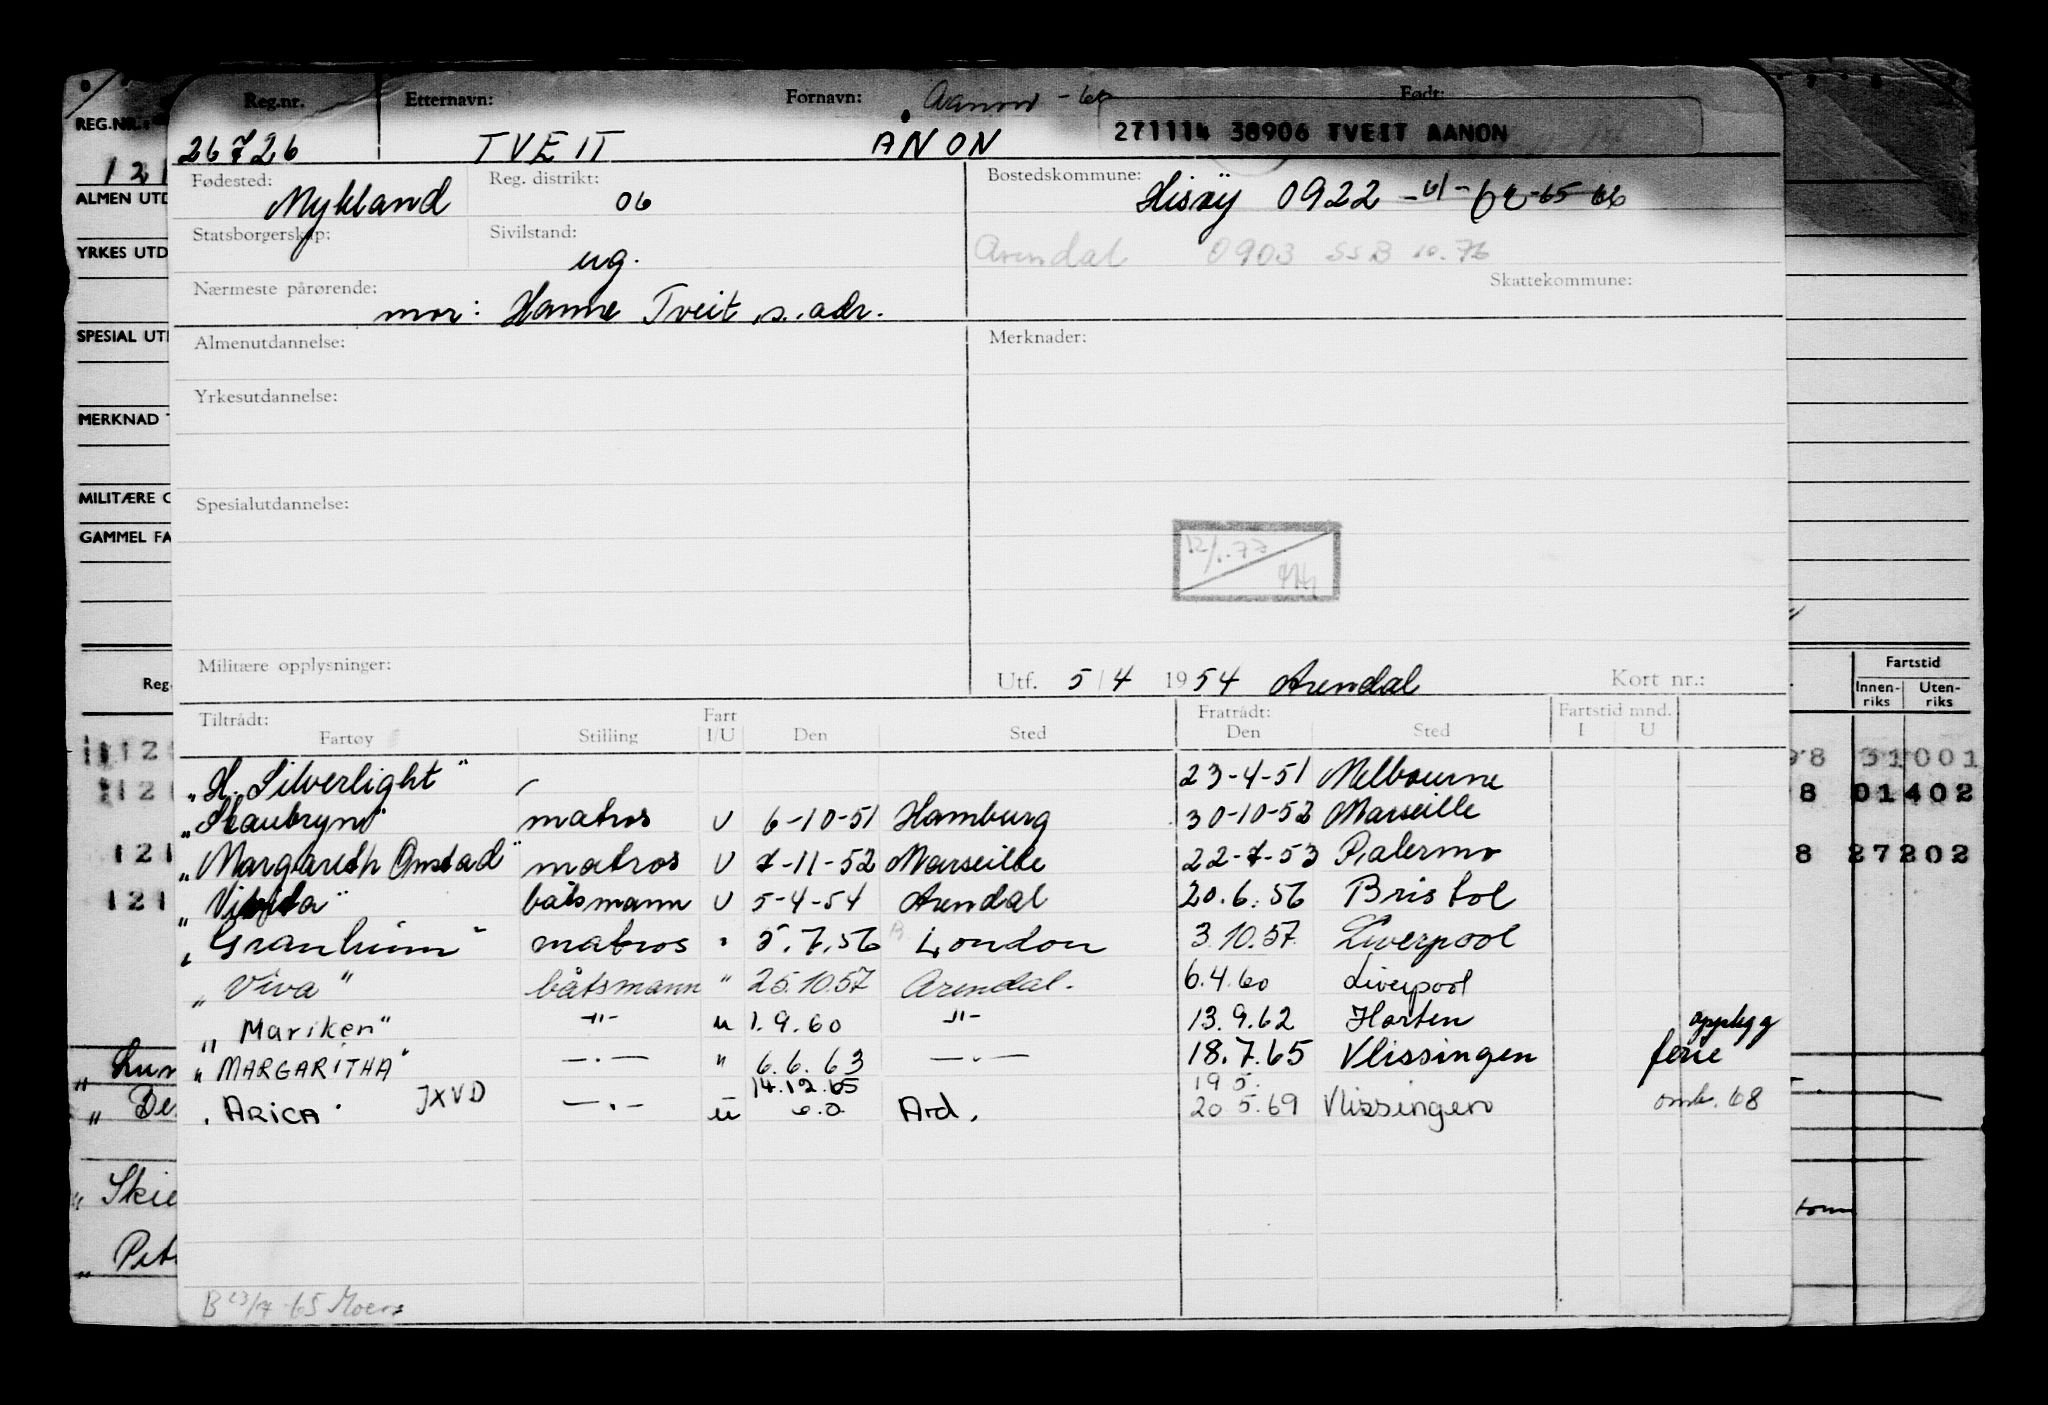 Reg.nr. Etternavn: Fornavn: Aanon - 66 Født:
26726 TVEIT ÅNON 271114 38906 TVEIT AANON
Fødested: Mykland Reg. distrikt: 06 Bostedskommune: Hisøy 0922 -61-62-65 66
Statsborgerskap: Sivilstand: ug. Arendal 0903 SSB 10.76
Nærmeste pårørende: Skattekommune:
mor: Hanne Tveit s. adr.
Almenutdannelse: Merknader:
Yrkesutdannelse:
Spesialutdannelse:
Militære opplysninger: Utf. 5/4 1954 Arendal Kort nr.:
Tiltrådt: Fart Fratrådt: Fartstid mnd.
Fartøy Stilling I/U Den Sted Den Sted I U
"H. Silverlight" 23-4-51 Melbourne
"Skaubryn" matros U 6-10-51 Hamburg 30-10-52 Marseille
"Margareth Onstad" matros U 7-11-52 Marseille 22-7-53 Palermo
båtsmann U 5-4-54 Arendal 20.6.56 Bristol
"Granheim" matros " 5.7.56 London 3.10.57 Liverpool
"Viva" båtsmann " 25.10.57 Arendal. 6.4.60 Liverpool
"Mariken" -"- u 1.9.60 -"- 13.9.62 Horten opplegg
"MARGARITHA" —.— " 6.6.63 —.— 18.7.65 Vlissingen ferie
14.12.65 19 5.
"ARICA" JXVD —.— u Ard. 20 5.69 Vlissingen omk. 68
B 23/7-65
REG.NR.:
121
ALMEN UTD
YRKES UTD
SPESIAL UT
MERKNAD
MILITÆRE
GAMMEL FA
Reg
121
121
121
121
"Pet
Fartstid
Innen-riks Uten-riks
98 31001
8 01402
8 27202